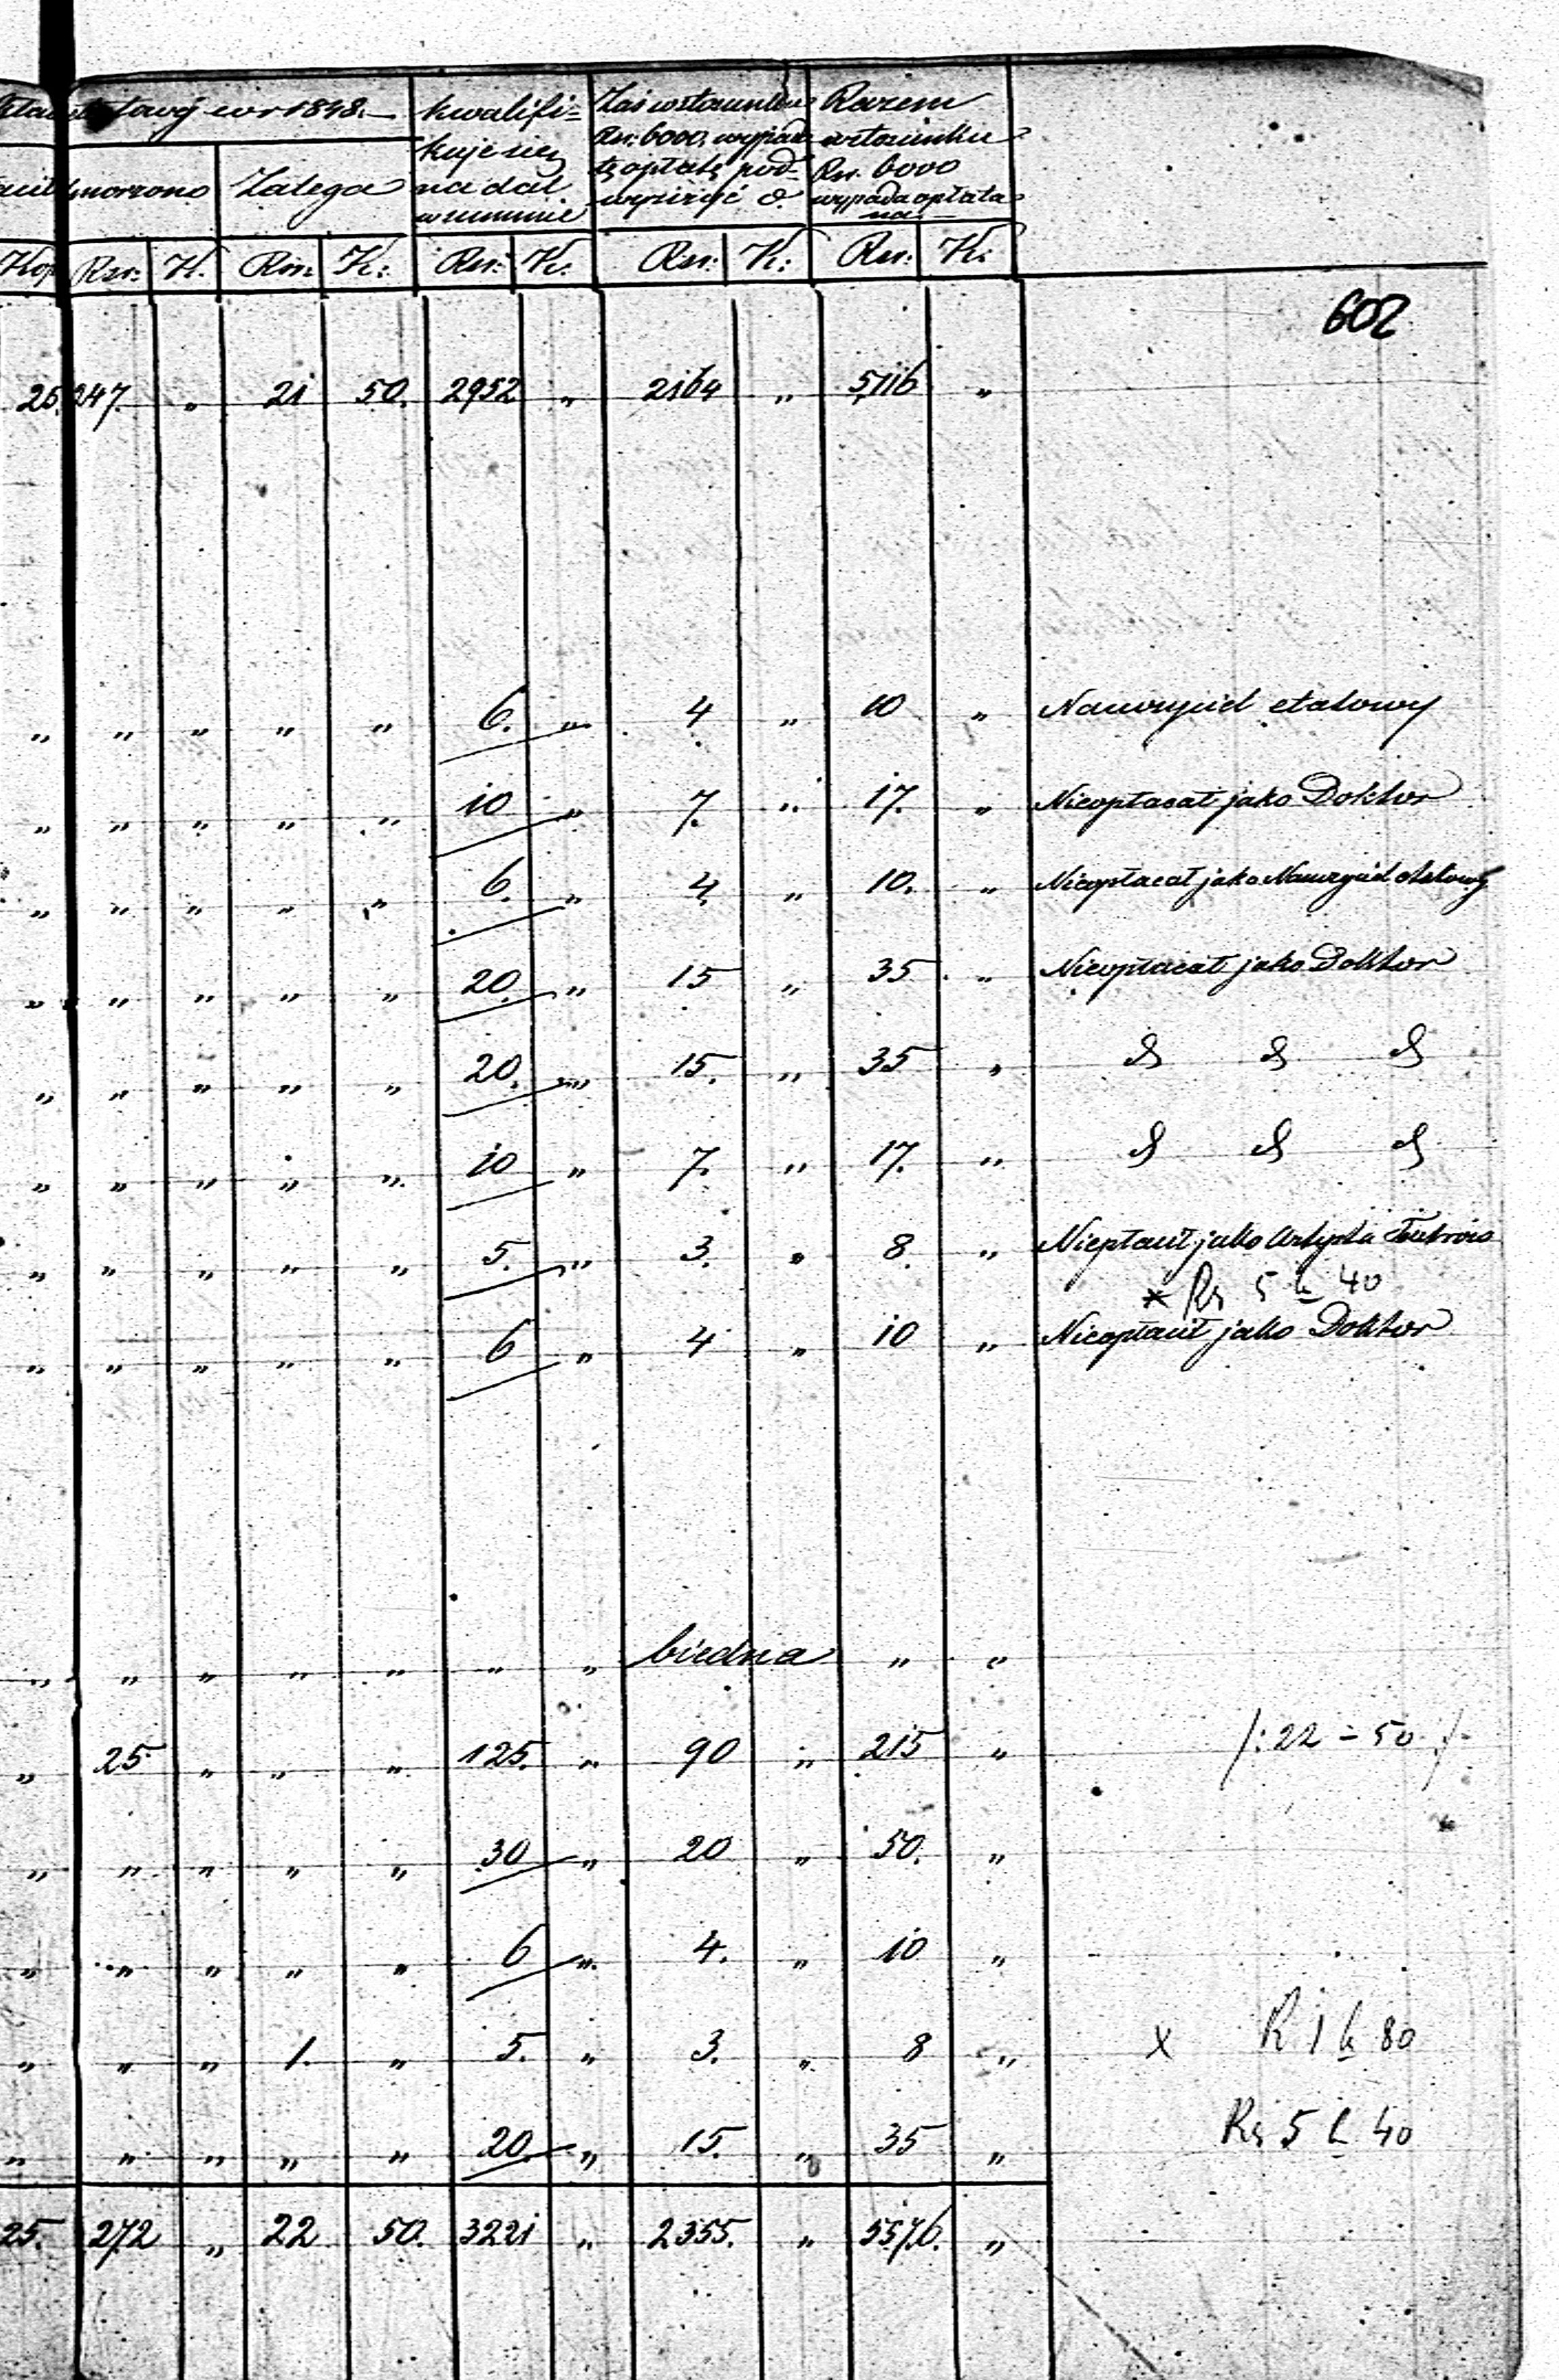 tawy w r 1848.
kwalifi-
kuje się
na dal
w summie
Zaś w stosunku
Rsr: 6000, wypada
tę opłatę pod-
wyższyć o.
Razem
w stosunku
Rsr. 6000
wypada opłata
na
umorzono Zalega
Kop Rsr: K. Rsr: K: Rsr: K: Rsr: K: Rsr: K:
602
25. 247. „ 21 50. 2952 „ 2164 „ 5116 „
„ „ „ „ „ 6. „ 4 „ 10 „ Nauczyciel etatowy
„ „ „ „ „ 10 „ 7. „ 17. „ Nieopłacał jako Doktor
„ „ „ „ „ 6. „ 4 „ 10. „ Nieopłacał jako Nauczyciel etatowy
„ „ „ „ „ 20. „ 15 „ 35 „ Nieopłacał jako Doktor
„ „ „ „ „ 20. „ 15. „ 35 „ d d d
„ „ „ „ „ 10 „ 7. „ 17. „ d d d
„ „ „ „ „ 5. „ 3. „ 8. „ Niepłacił jako Artysta
× Rs 5 k 40
„ „ „ „ „ 6 „ 4 „ 10 „ Nieopłacił jako Doktor
„ „ „ „ „ „ „ biedna „ „
„ 25 „ „ „ 125. „ 90 „ 215 „ /: 22 = 50 :/
„ „ „ „ „ 30 „ 20 „ 50. „
„ „ „ „ „ 6 „ 4. „ 10 „
„ „ „ 1. „ 5. „ 3. „ 8 „ × R 1 k 80
„ „ „ „ „ 20. „ 15. „ 35 „ Rs 5 k 40
25. 272 „ 22 50. 3221 „ 2355. „ 5576. „